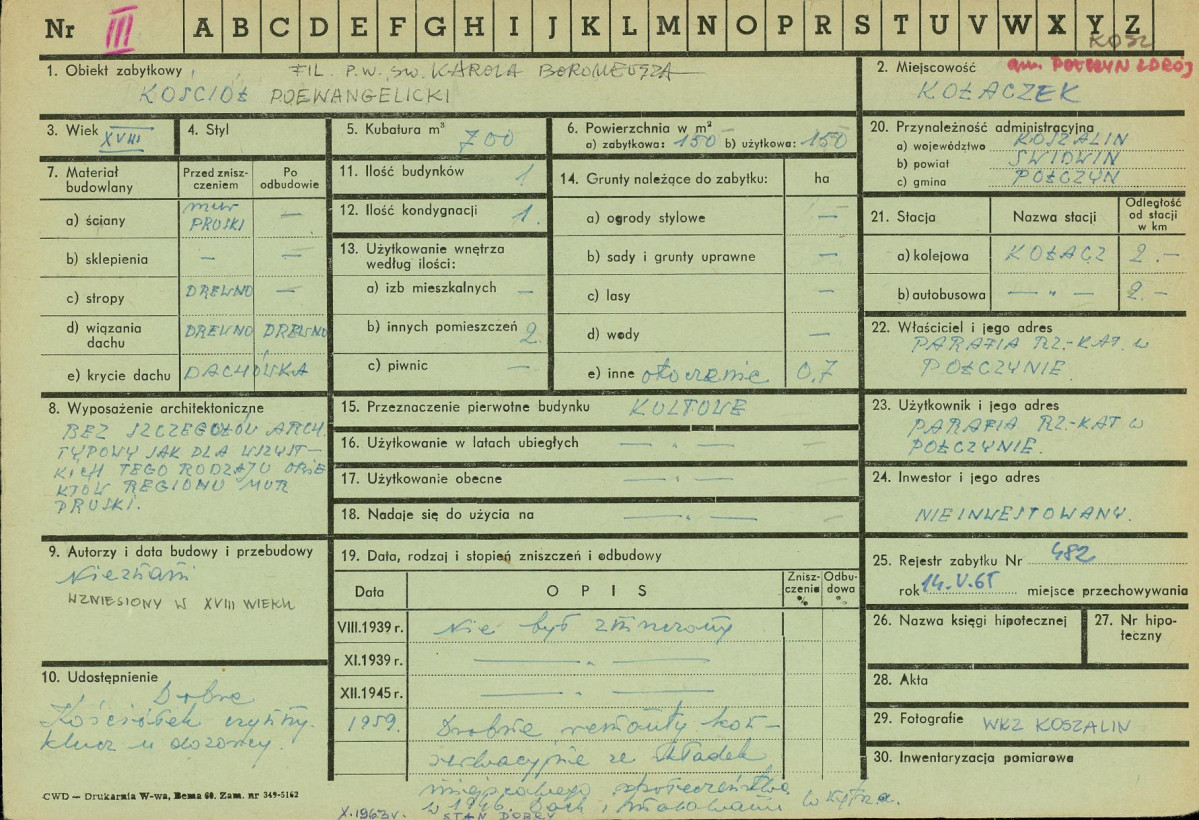 Nr III A B C D E F G H I J K L M N O P R S T U V W X Y Z
KOSZ
1. Obiekt zabytkowy FIL. P.W. ŚW. KAROLA BOROMEUSZA
KOŚCIÓŁ POEWANGELICKI
2. Miejscowość gm. POŁCZYN ZDRÓJ
KOŁACZEK
3. Wiek XVIII
4. Styl
5. Kubatura m³ 700
6. Powierzchnia w m²
a) zabytkowa: 150 b) użytkowa: 150
20. Przynależność administracyjna
a) województwo KOSZALIN
b) powiat ŚWIDWIN
c) gmina POŁCZYN
7. Materiał budowlany
Przed zniszczeniem
Po odbudowie
a) ściany mur PRUSKI —
b) sklepienia — —
c) stropy DREWNO —
d) wiązania dachu DREWNO DREWNO
e) krycie dachu DACHÓWKA
11. Ilość budynków 1
12. Ilość kondygnacji 1.
13. Użytkowanie wnętrza według ilości:
a) izb mieszkalnych —
b) innych pomieszczeń 2.
c) piwnic —
14. Grunty należące do zabytku: ha
a) ogrody stylowe —
b) sady i grunty uprawne —
c) lasy —
d) wody —
e) inne otoczenie 0,7
21. Stacja
Nazwa stacji
Odległość od stacji w km
a) kolejowa KOŁACZ 2.—
b) autobusowa — „ — 2.—
22. Właściciel i jego adres
PARAFIA RZ-KAT. W
POŁCZYNIE
8. Wyposażenie architektoniczne
BEZ SZCZEGÓŁÓW ARCH.
TYPOWY JAK DLA WSZYST-
KICH TEGO RODZAJU OBIE
KTÓW REGIONU MUR
PRUSKI.
15. Przeznaczenie pierwotne budynku KULTOWE
16. Użytkowanie w latach ubiegłych — „ —
17. Użytkowanie obecne — „ —
18. Nadaje się do użycia na — „ —
23. Użytkownik i jego adres
PARAFIA RZ.-KAT W
POŁCZYNIE.
24. Inwestor i jego adres
NIEINWESTOWANY.
9. Autorzy i data budowy i przebudowy
Nieznani
WZNIESIONY W XVIII WIEKU
19. Data, rodzaj i stopień zniszczeń i odbudowy
Data OPIS Zniszczenie % Odbudowa %
VIII.1939 r. Nie był zniszczony
XI.1939 r. — „ —
XII.1945 r. — „ —
1959. Drobne remonty kon-
serwacyjne ze składek
miejscowego społeczeństwa
w 1946. Dach i malowanie wnętrza.
X.1963r. STAN DOBRY
10. Udostępnienie
Dobre
Kościółek czynny.
klucz u dozorcy.
25. Rejestr zabytku Nr 482
rok 14.V.65 miejsce przechowywania
26. Nazwa księgi hipotecznej
27. Nr hipoteczny
28. Akta
29. Fotografie WKZ KOSZALIN
30. Inwentaryzacja pomiarowa
CWD — Drukarnia W-wa, Bema 60. Zam. nr 349-5162